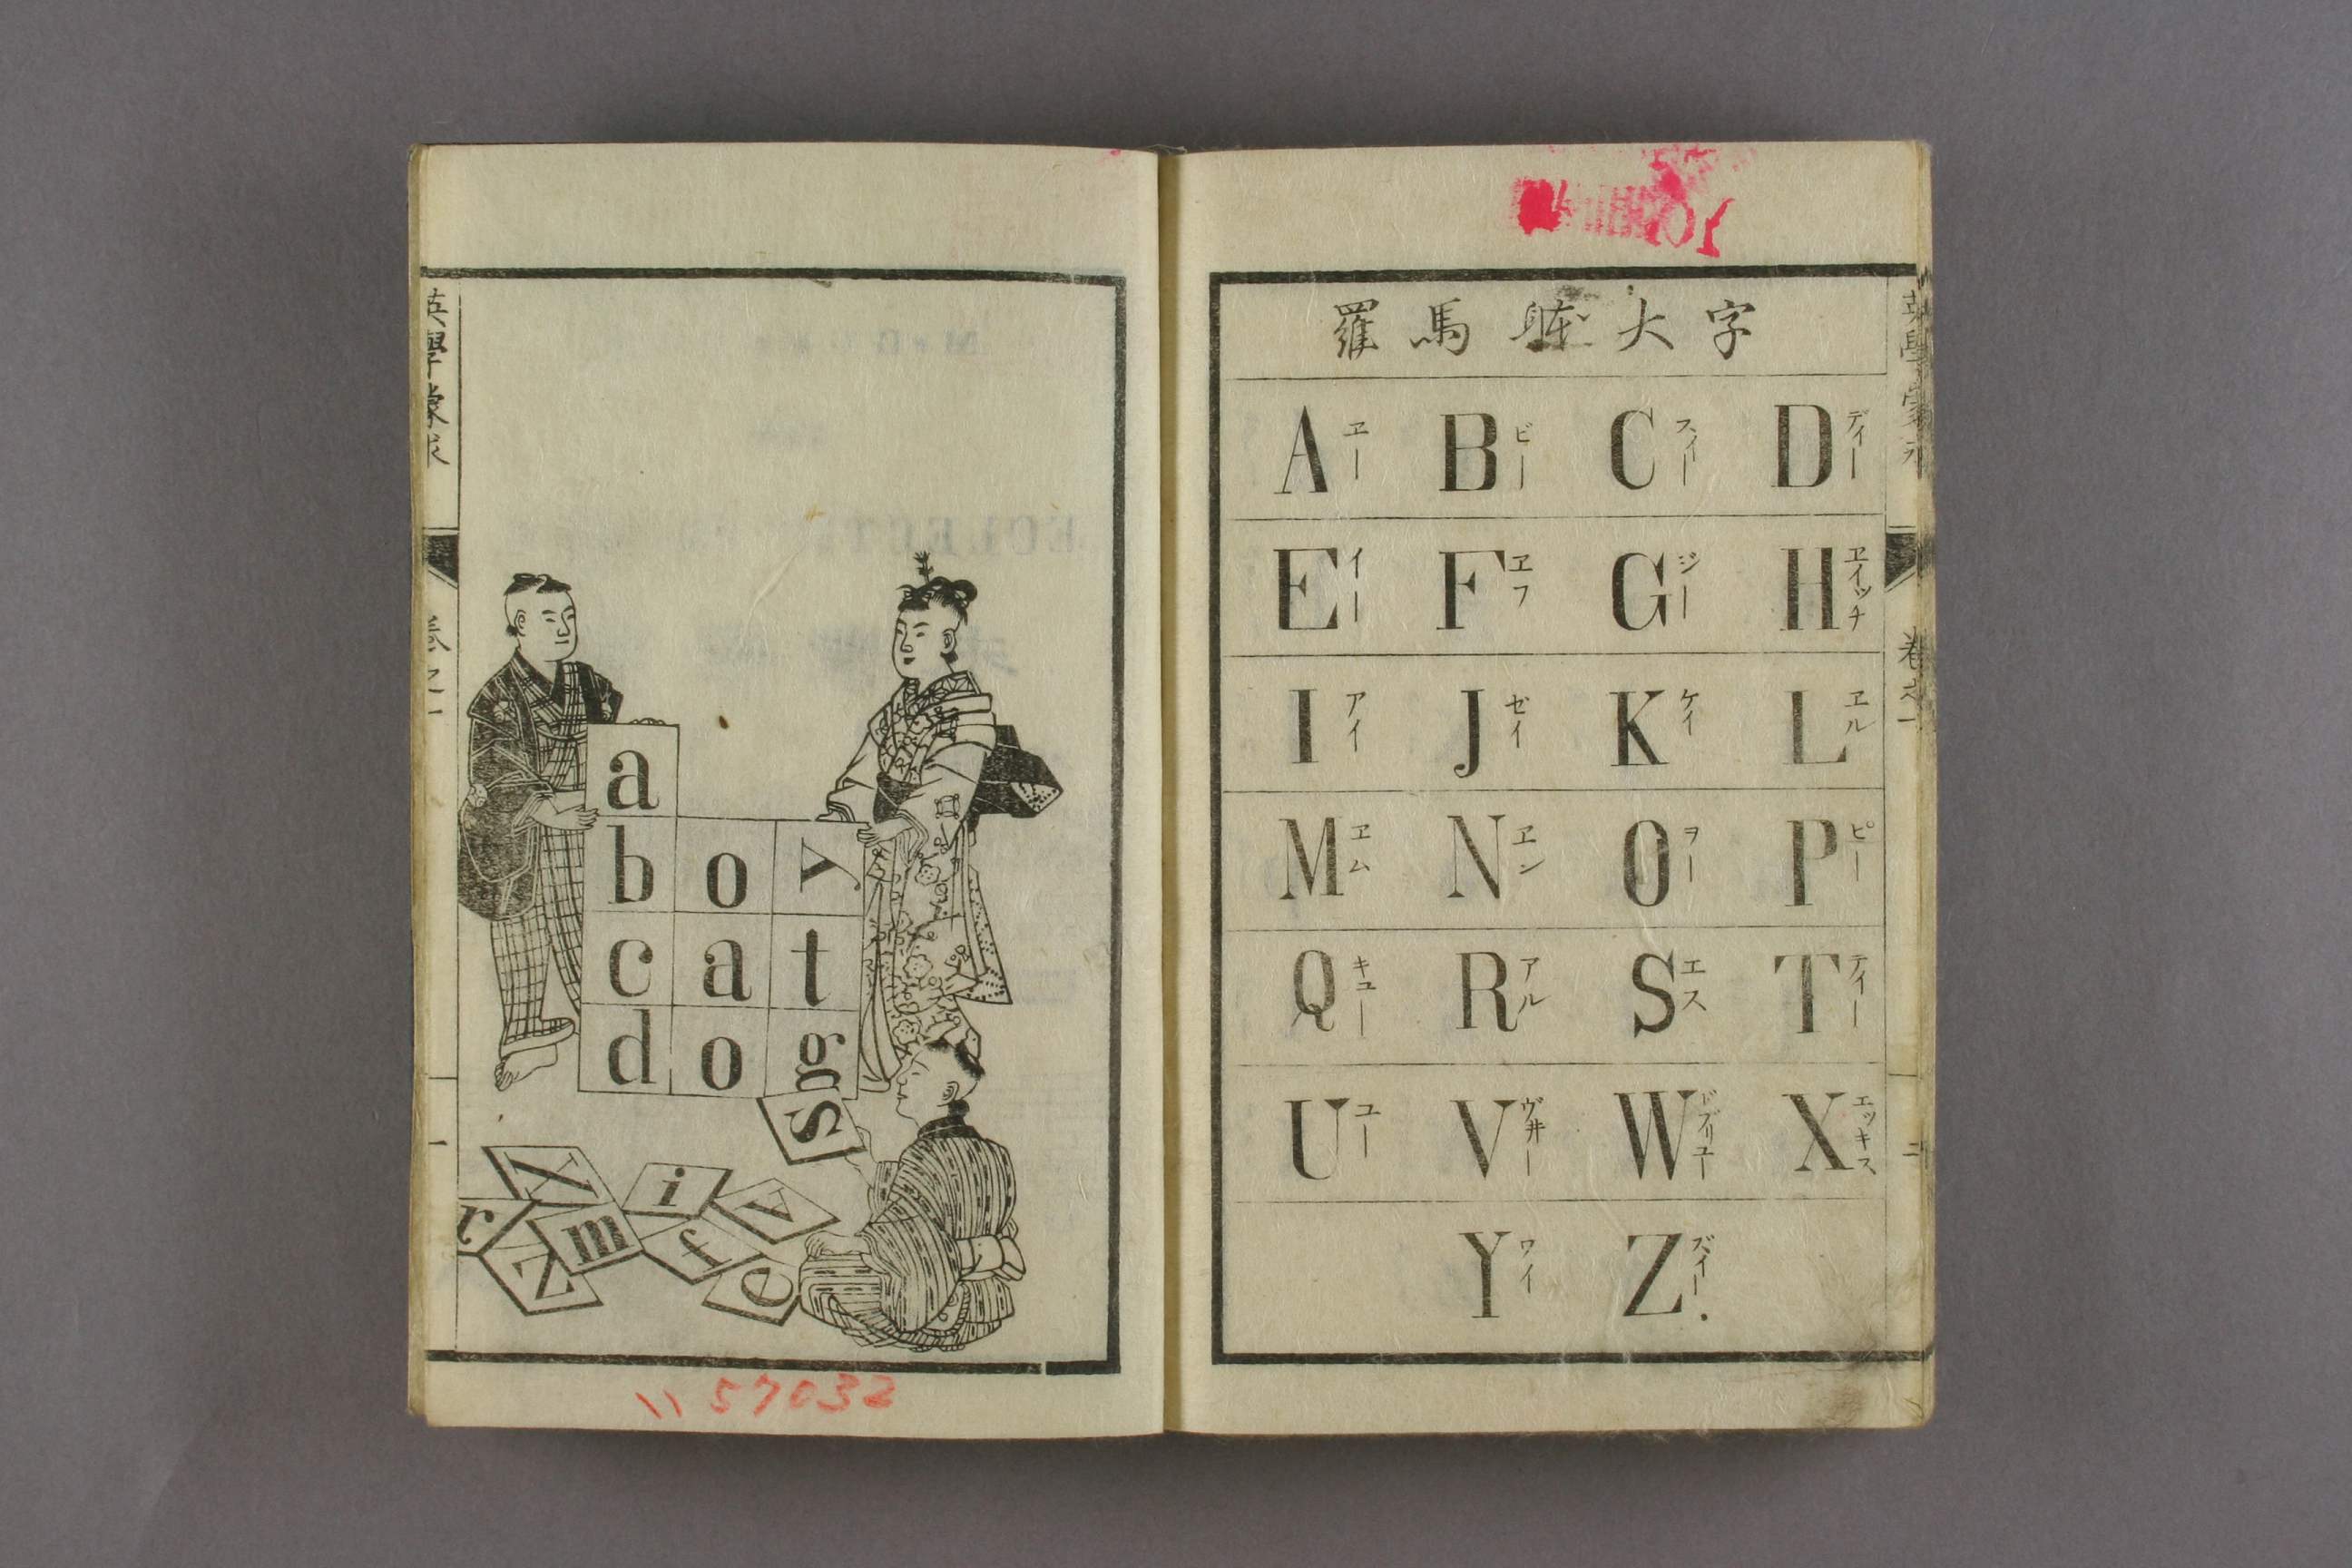 英學蒙求
卷之一
一
a
b o y
c a t
d o g
s
y i v
r m f
z e
11 57032
羅馬 大字
A エー B ビー C スィー D ディー
E イー F ヱフ G ジー H ヱイッチ
I アイ J ゼイ K ケイ L ヱル
M ヱム N ヱン O ヲー P ピー
Q キュー R アル S エス T テイー
U ユー V ヴ井ー W ドブリユー X エッキス
Y ワイ Z ズイー.
英學蒙求
卷之一
二